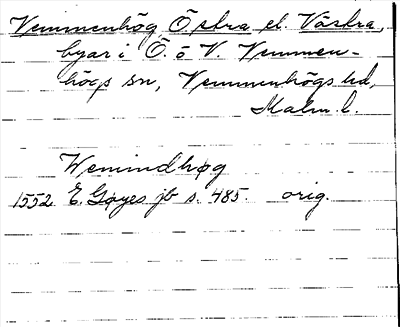 Vemmenhög Östra el. Västra,
byar i Ö. o V. Vemmen-
högs sn, Vemmenhögs hd,
Malm. l.
Wemindhøg
1552 E. Gøyes jb s. 485. orig.